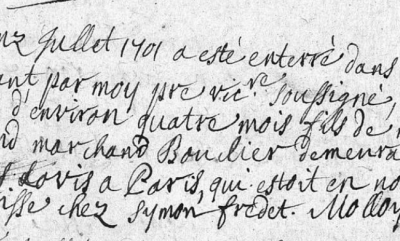 nz Juillet 1701 a esté enterré dans
ant par moy pre vic.re soussigné,
d'environ quatre mois fils de
nd marchand Bouclier demeura
Louis a Paris, qui estoit en no
isse chez Symon fredet. Molloy